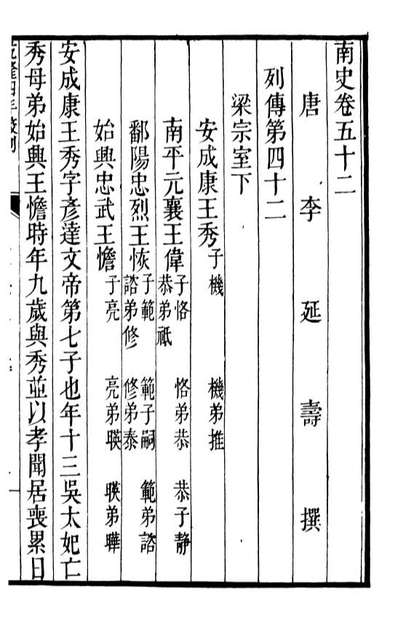 南史卷五十二
唐 李 延 壽 撰
列傳第四十二
梁宗室下
安成康王秀 子機 機弟推
南平元襄王偉 子恪 恪弟恭 恭子靜 恭弟祗
鄱陽忠烈王恢 子範 範子嗣 範弟諮 諮弟修 修弟泰
始興忠武王憺 子亮 亮弟暎 暎弟曄
安成康王秀字彥達文帝第七子也年十三吳太妃亡
秀母弟始興王憺時年九歲與秀並以孝聞居喪累日